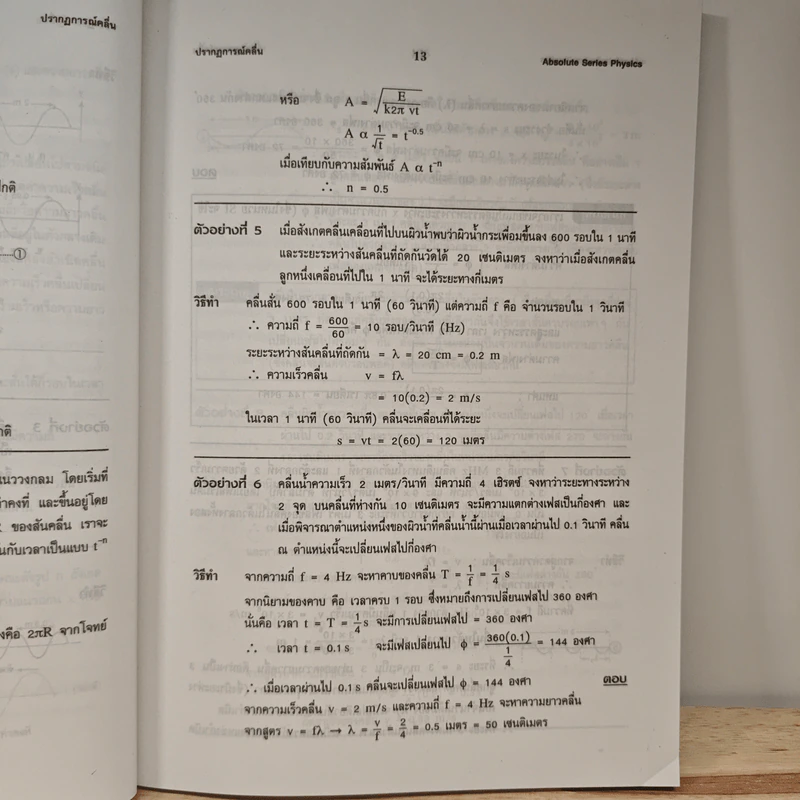 ปรากฏการณ์คลื่น
ปกติ
①
าติ
นววงกลม โดยเริ่มที่
าคงที่ และขึ้นอยู่โดย
ของสันคลื่น เราจะ
นกับเวลาเป็นแบบ t⁻ⁿ
งคือ 2πR จากโจทย์
ปรากฏการณ์คลื่น 13 Absolute Series Physics
หรือ A = √(E / k2π vt)
A α 1/√t = t⁻⁰·⁵
เมื่อเทียบกับความสัมพันธ์ A α t⁻ⁿ
∴ n = 0.5
ตัวอย่างที่ 5 เมื่อสังเกตคลื่นเคลื่อนที่ไปบนผิวน้ำพบว่าผิวน้ำกระเพื่อมขึ้นลง 600 รอบใน 1 นาที
และระยะระหว่างสันคลื่นที่ถัดกันวัดได้ 20 เซนติเมตร จงหาว่าเมื่อสังเกตคลื่น
ลูกหนึ่งเคลื่อนที่ไปใน 1 นาที จะได้ระยะทางกี่เมตร
วิธีทำ คลื่นสั่น 600 รอบใน 1 นาที (60 วินาที) แต่ความถี่ f คือ จำนวนรอบใน 1 วินาที
∴ ความถี่ f = 600/60 = 10 รอบ/วินาที (Hz)
ระยะระหว่างสันคลื่นที่ถัดกัน = λ = 20 cm = 0.2 m
∴ ความเร็วคลื่น v = fλ
= 10(0.2) = 2 m/s
ในเวลา 1 นาที (60 วินาที) คลื่นจะเคลื่อนที่ได้ระยะ
s = vt = 2(60) = 120 เมตร
ตัวอย่างที่ 6 คลื่นน้ำความเร็ว 2 เมตร/วินาที มีความถี่ 4 เฮิรตซ์ จงหาว่าระยะทางระหว่าง
2 จุด บนคลื่นที่ห่างกัน 10 เซนติเมตร จะมีความแตกต่างเฟสเป็นกี่องศา และ
เมื่อพิจารณาตำแหน่งหนึ่งของผิวน้ำที่คลื่นน้ำนี้ผ่านเมื่อเวลาผ่านไป 0.1 วินาที คลื่น
ณ ตำแหน่งนี้จะเปลี่ยนเฟสไปกี่องศา
วิธีทำ จากความถี่ f = 4 Hz จะหาคาบของคลื่น T = 1/f = 1/4 s
จากนิยามของคาบ คือ เวลาครบ 1 รอบ ซึ่งหมายถึงการเปลี่ยนเฟสไป 360 องศา
นั่นคือ เวลา t = T = 1/4 s จะมีการเปลี่ยนเฟสไป = 360 องศา
∴ เวลา t = 0.1 s จะมีเฟสเปลี่ยนไป ϕ = 360(0.1) / (1/4) = 144 องศา
∴ เมื่อเวลาผ่านไป 0.1 s คลื่นจะเปลี่ยนเฟสไป ϕ = 144 องศา ตอบ
จากความเร็วคลื่น v = 2 m/s และความถี่ f = 4 Hz จะหาความยาวคลื่น
จากสูตร v = fλ → λ = v/f = 2/4 = 0.5 เมตร = 50 เซนติเมตร